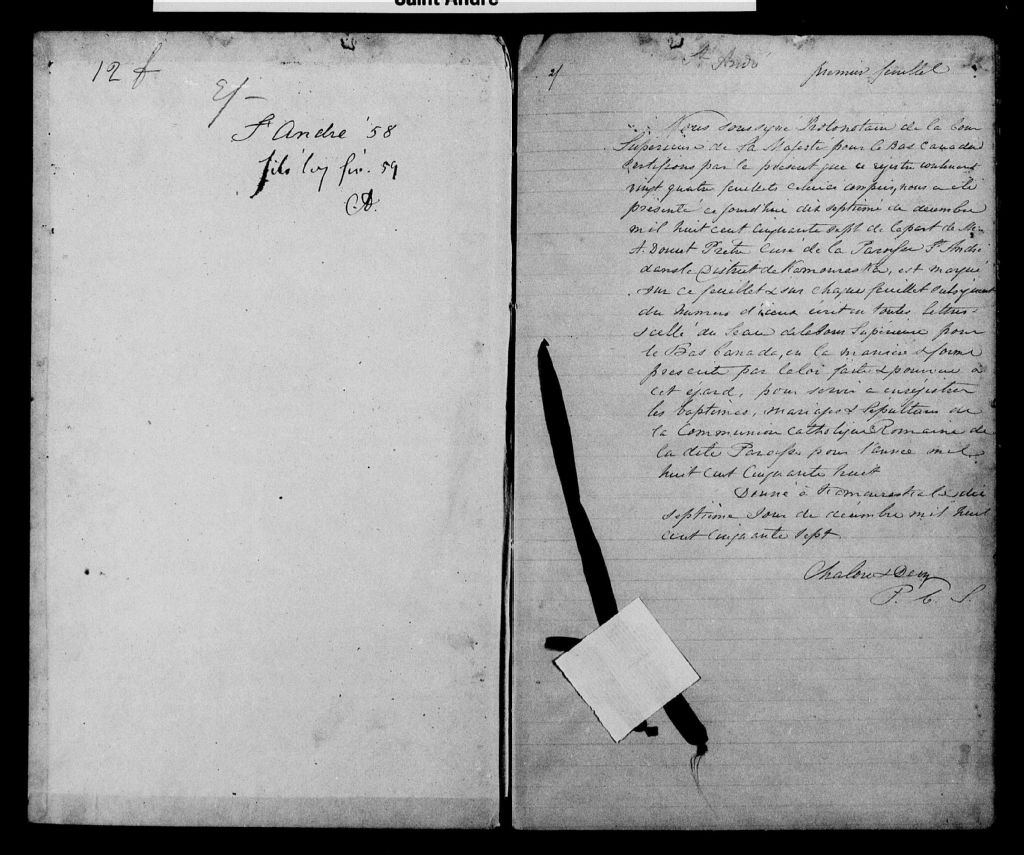 Saint André
12 f
2/-
St André '58
filé 1er fév. 59
St André
2/
premier feuillet
Nous soussigné Protonotaire de la Cour
Supérieure de Sa Majesté pour le Bas Canada
Certifions par le présent que ce régistre contenant
vingt quatre feuillets celui ci compris, nous a été
présenté ce jourd'hui dix septième de décembre
mil huit cent cinquante sept de la part de Mr
A. Doucet Prêtre Curé de la Paroisse St André
dans le District de Kamouraska, est marqué
sur ce feuillet & sur chaque feuillet subséquent
du numéro d'iceux écrit en toutes lettres
scellé du Sceau de la Cour Supérieure pour
le Bas Canada, en la manière & forme
prescrite par la loi faite & pourvue à
cet égard, pour servir a enrégistrer
les baptêmes, mariages & sépultures de
la Communion Catholique Romaine de
la dite Paroisse pour l'année mil
huit cent cinquante huit
Donné à Kamouraska le dix
septième jour de décembre mil huit
cent cinquante sept
P. C. S.